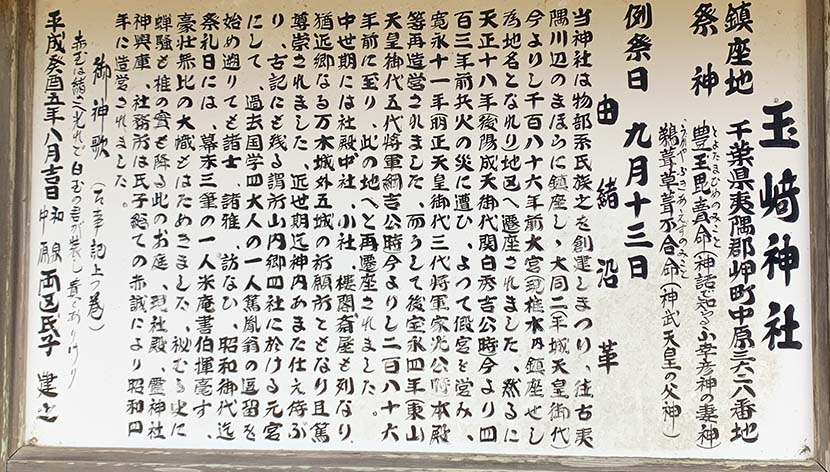 玉﨑神社
鎮座地 千葉県夷隅郡岬町中原三六二八番地
祭神 豊玉毘賣命(神話で知る小幸彦神の妻神)
とよたまひめのみこと
鵜葺草葺不合命(神武天皇の父神)
うがやふきあえずのみこと
例祭日 九月十三日
由緒沿革
当神社は物部系氏族之を創建しまつり、往古夷
隅川辺のまほらに鎮座し、大同二(平城天皇御代)
今よりし千百八十六年前大宮、椎木乃鎮座せし
為地名となれり地区へ遷座されました、然るに
天正十八年後陽成天御代関白秀吉公時今より四
百三年前兵火の災に遭ひ、よつて假宮を営み、
寛永十一年明正天皇御代三代将軍家光公時本殿
等再造営されました、而うして後宝永四年(東山
天皇御代五代将軍綱吉公時今よりし二百八十六
年前に至り、此の地へと再遷座されました。
中世期には社殿中社、小社、楼閣斎屋も列なり、
猶近郷なる万木城外五城の祈願所ともなり且篤
尊崇されました、近世期迄神内あまた仕え侍ふ
り、古記にも残る謂所山内郷四社に於ける元宮
にして、過去国学四大人の一人篤胤翁の逗留を
始め遡りても諸士、諸雅、訪なひ、昭和御代迄
祭礼日には、幕末三筆の一人米庵書伯揮毫す、
豪壮無比の大幟もはためきました、秘むる史に
蝉騒も椎の實も降る此のお庭、現社殿、霊神社
神輿庫、社務所は氏子総ての赤誠により昭和四
年に造営されました。
御神歌(古事記上つ巻)
赤玉は緒さへ光れど白玉の君が装し貴くありけり
平成癸酉五年八月吉日 和泉 中原 両区氏子 建之